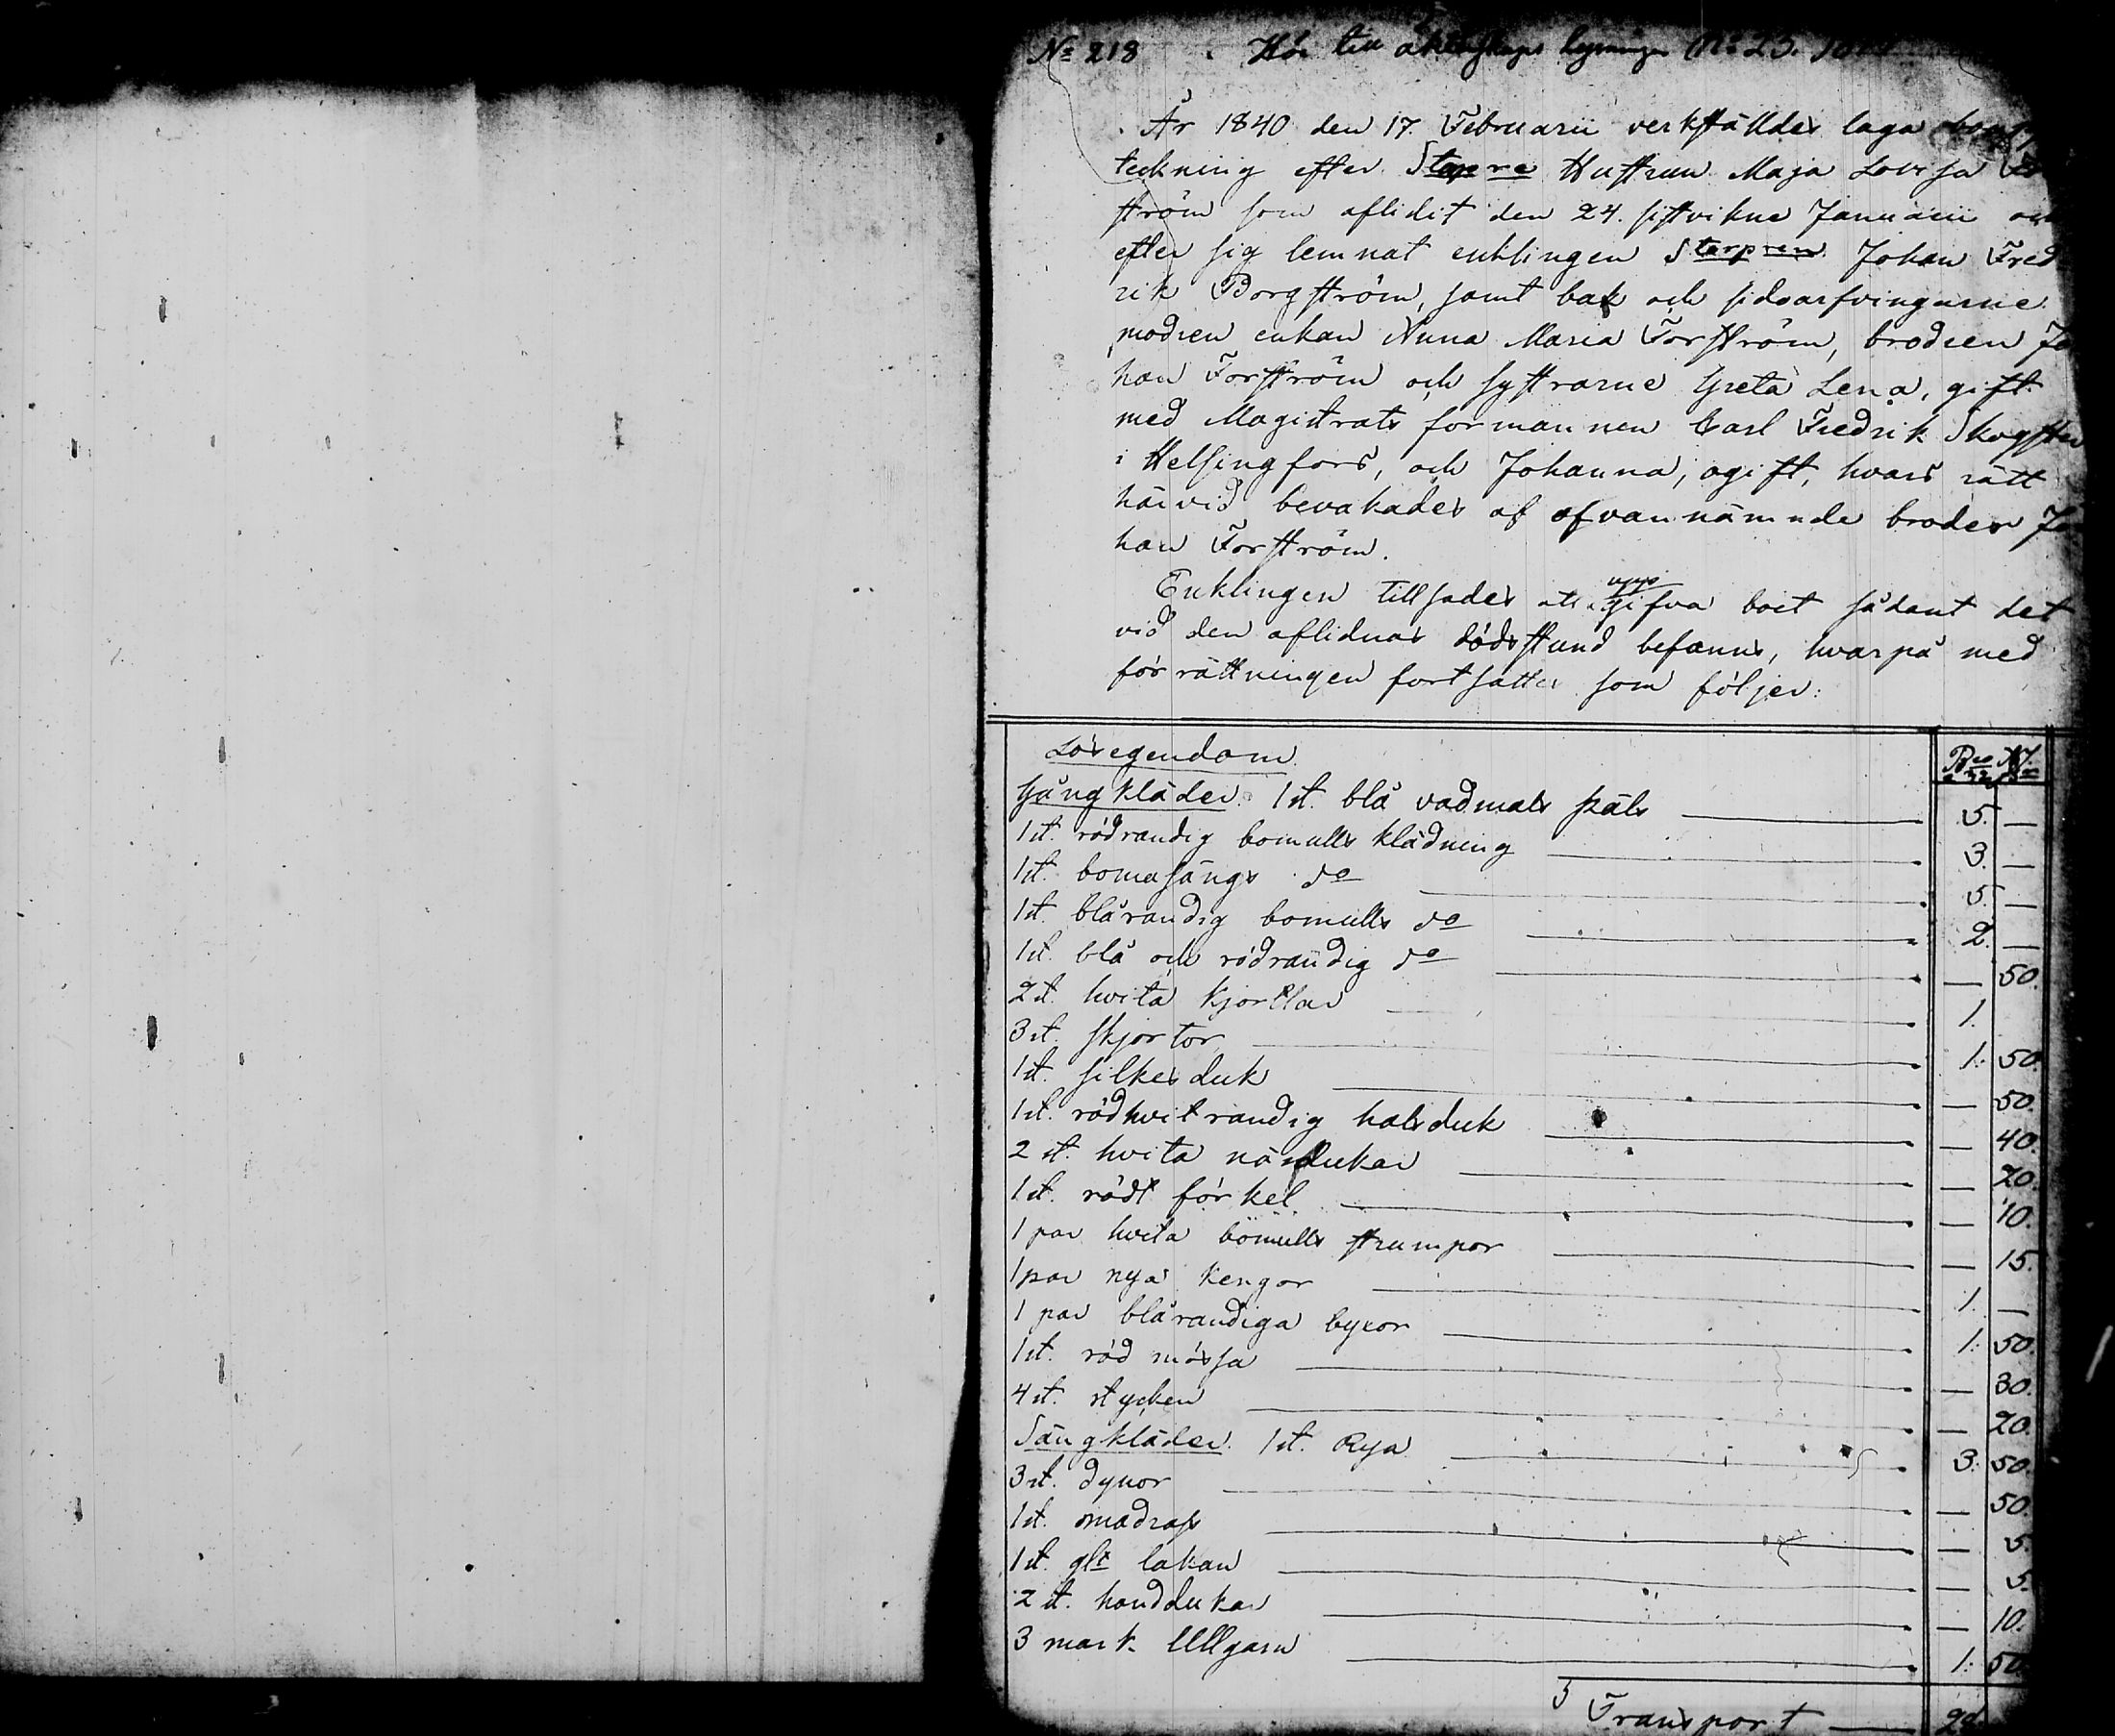 No 218 Hör till äktenskaps lysningen No 23.
År 1840 den 17. Februarii verkställdes laga
teckning efter Torpare Hustrun Maja Lovisa
ström som aflidit den 24. sistvikne Januarii och
efter sig lemnat enklingen Torparen Johan Fred
rik Borgström, samt bak och sidoarfvingarne
modren enkan Anna Maria Forström, brodren Jo
han Forström och systrarne Greta Lena, gift
med Magistrats formannen Carl Fredrik
i Helsingfors, och Johanna, ogift, hvars rätt
härvid bevakades af ofvannämnde broder Jo
han Forström.
Enklingen tillsades att uppgifva boet sådant det
vid den aflidnas dödsstund befanns, hvarpå med
förrättningen fortsattes som följer:
Lösegendom
Gångkläder. 1 st. blå vadmals päls 5. —
1 st. rödrandig bomulls klädning 3. —
1 st. bomasängs do 5. —
1 st. blårandig bomulls do 2. —
1 st. blå och rödrandig do — 50.
2 st. hvita kjortlar 1.
3 st. skjortor 1. 50.
1 st. silkes duk — 50.
1 st. rödhvitrandig halsduk — 40.
2 st. hvita näsdukar — 20.
1 st. rödt förkel — 10.
1 par hvita bomulls strumpor — 15.
1 par nya kengor 1. —
1 par blårandiga byxor 1. 50.
1 st. röd mössa — 30.
4 st. stycken — 20.
Sängkläder. 1 st. Rya 3. 50.
3 st. dynor — 50.
1 st. madrass — 5.
1 st. glt lakan — 5.
2 st. handdukar — 10.
3 mark Ullgarn 1. 50.
Transport